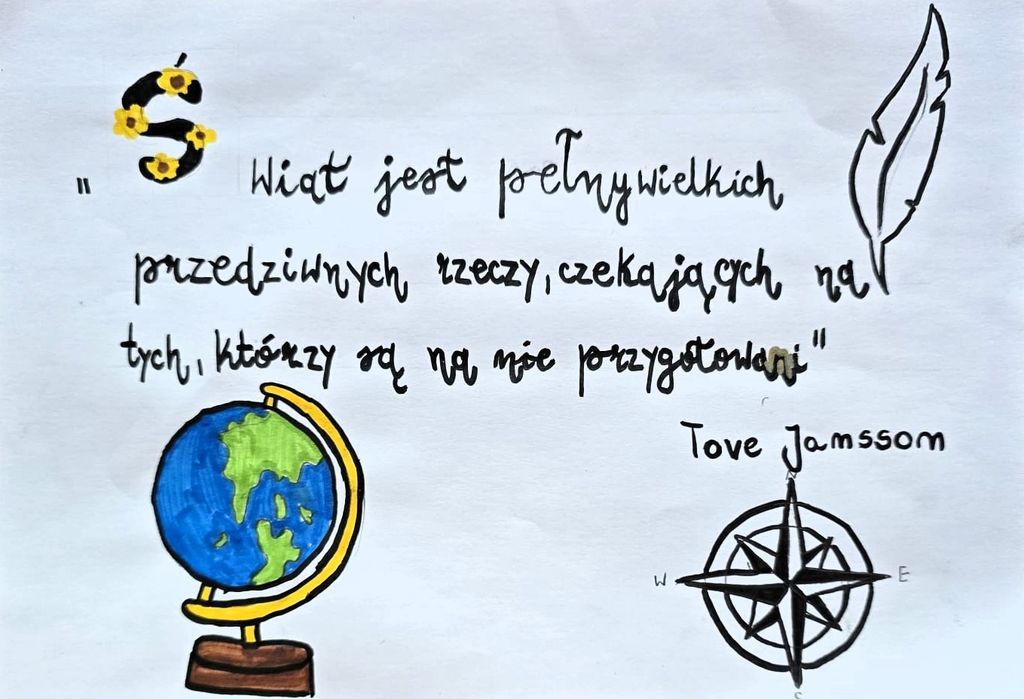 "Świat jest pełny wielkich
przedziwnych rzeczy, czekających na
tych, którzy są na nie przygotowani"
Tove Jamssom
N
W E
S